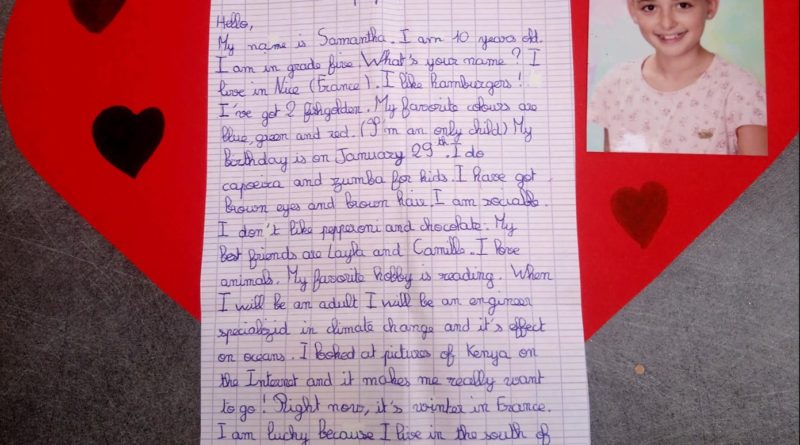 Hello,
My name is Samantha. I am 10 years old.
I am in grade five. What's your name? I
live in Nice (France). I like hamburgers!
I've got 2 fishgolden. My favorite colours are
blue, green and red. (I'm an only child) My
birthday is on January 29th. I do
capoeira and zumba for kids. I have got
brown eyes and brown hair. I am sociable.
I don't like pepperoni and chocolate. My
best friends are Layla and Camille. I love
animals. My favorite hobby is reading. When
I will be an adult I will be an engineer
specialized in climate change and it's effect
on oceans. I looked at pictures of Kenya on
the Internet and it makes me really want
to go! Right now, it's winter in France.
I am lucky because I live in the south of